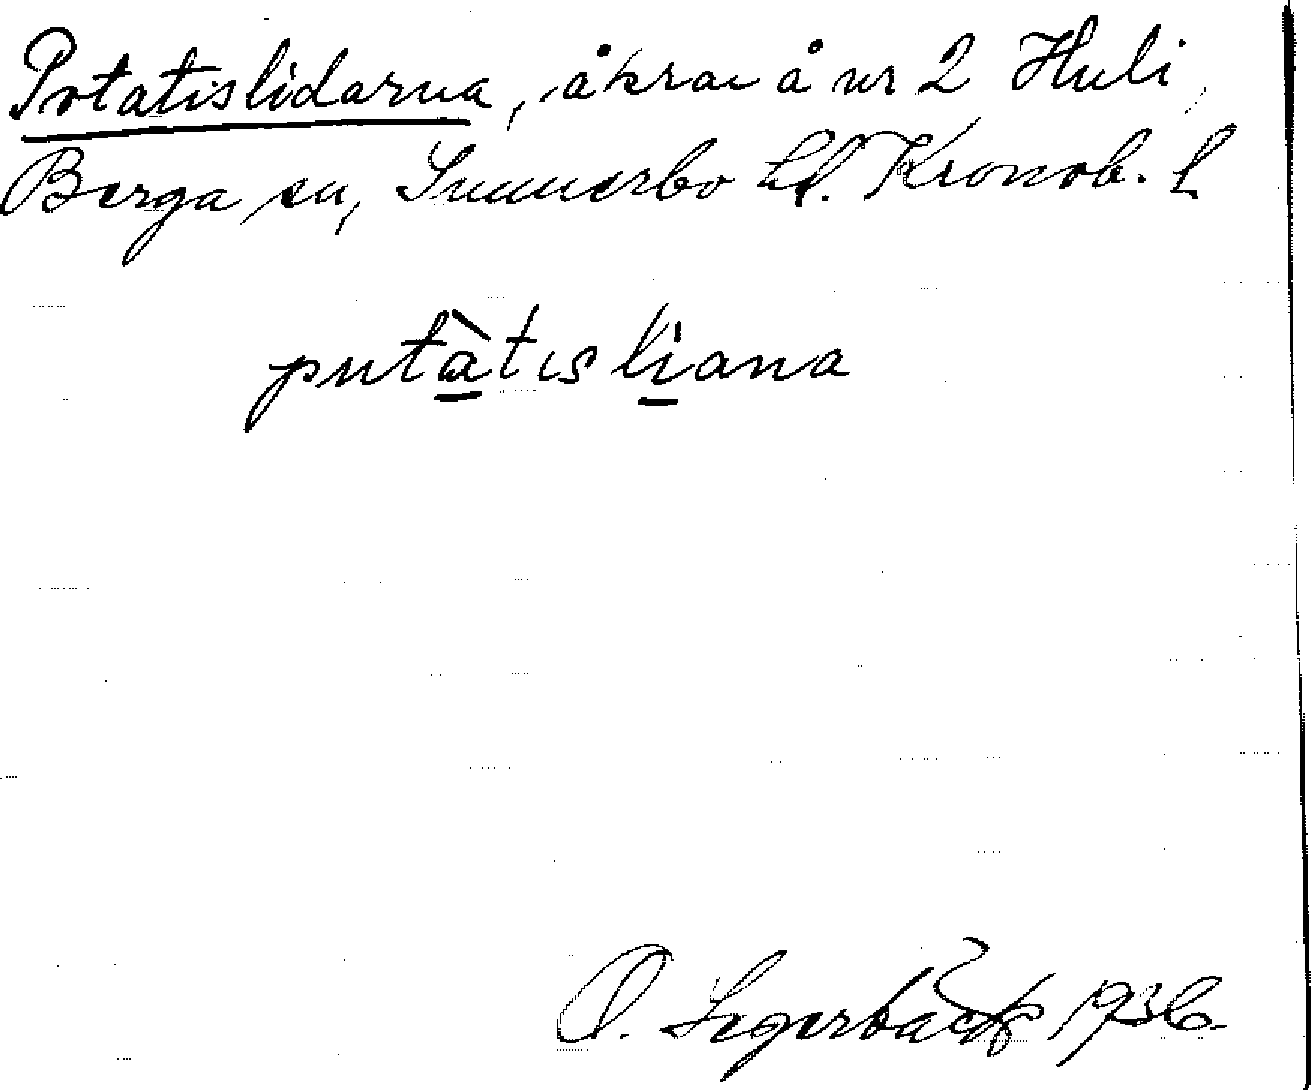 Potatislidarna, åkrar å nr 2 Huli,
Berga sn, Sunnerbo hd. Kronob. l
putàtisliana
O. Segerbäck 1936.